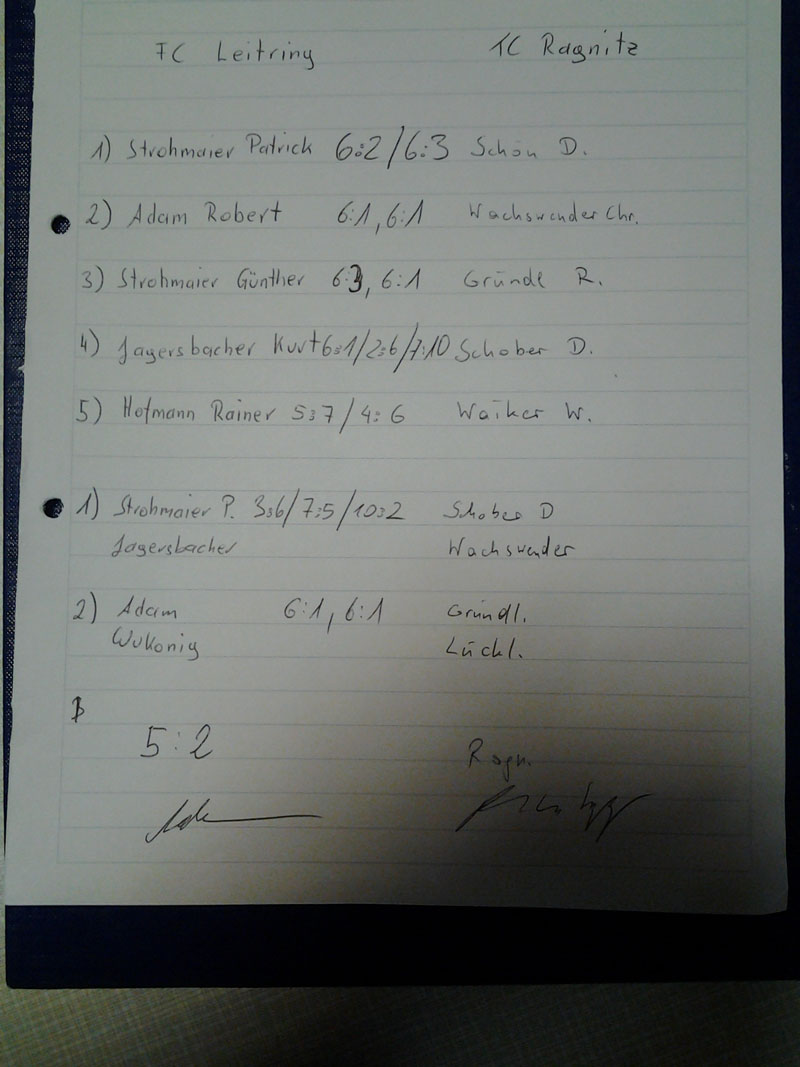 FC Leitring TC Ragnitz
1) Strohmaier Patrick 6:2/6:3 Schön D.
2) Adam Robert 6:1, 6:1 Wachswender Chr.
3) Strohmaier Günther 6:3, 6:1 Gründl R.
4) Jagersbacher Kurt 6:1/2:6/7:10 Schober D.
5) Hofmann Rainer 5:7/4:6 Walker W.
1) Strohmaier P. 3:6/7:5/10:2 Schober D
Jagersbacher Wachswender
2) Adam 6:1, 6:1 Gründl.
Wukonig Lückl.
5:2 Ragn.